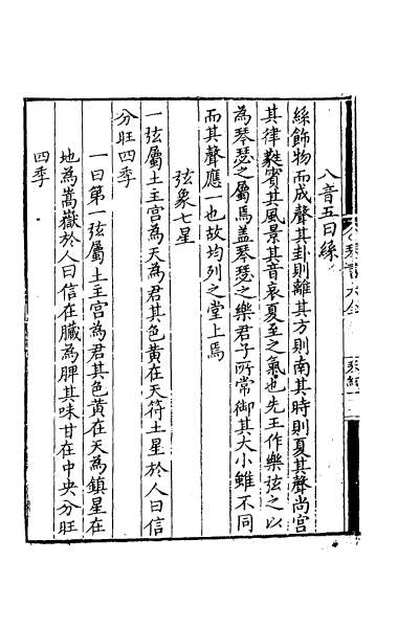 琴書大全
八音五曰絲
絲飾物而成聲其卦則離其方則南其時則夏其聲尚宮
其律蕤賓其風景其音哀夏至之氣也先王作樂弦之以
為琴瑟之屬焉盖琴瑟之樂君子所常御其大小雖不同
而其聲應一也故均列之堂上焉
弦象七星
一弦屬土主宮為天為君其色黄在天符土星於人曰信
分旺四季
一曰第一弦屬土主宮為君其色黄在天為鎮星在
地為嵩嶽於人曰信在臟為脾其味甘在中央分旺
四季